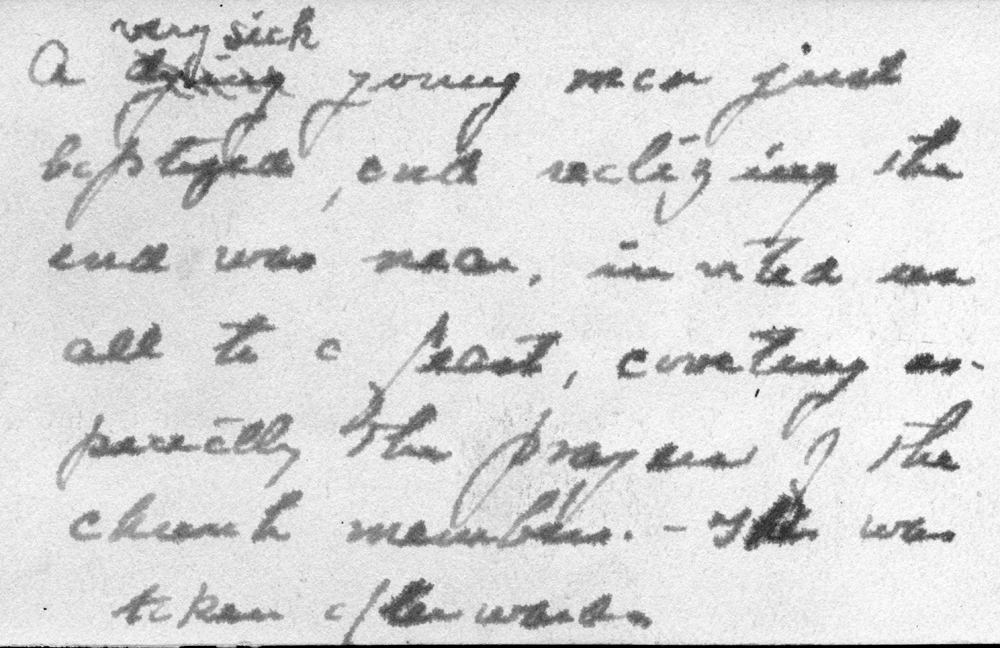 very sick
A dying young man just
baptized, and realizing the
end was near, invited us
all to a feast, coveting es-
pecially the prayers of the
church members. - This was
taken afterwards